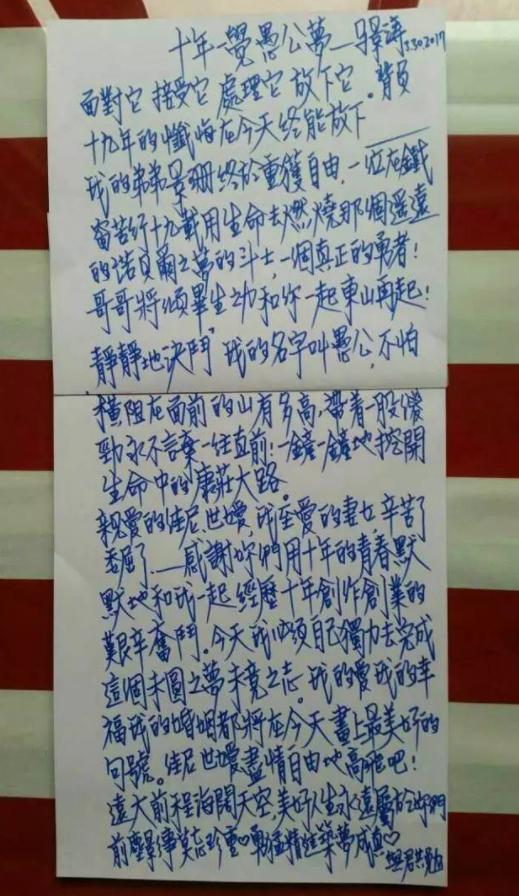 十年一覺愚公夢—驛濤 5.30.2017
面對它 接受它 處理它 放下它。背負
十九年的懺悔在今天終能放下
我的弟弟景珊終於重獲自由,一位在鐵
窗苦行十九載用生命去燃燒那個遥遠
的诺貝爾之夢的斗士,一個真正的勇者!
哥哥將傾畢生之力和你一起東山再起!
靜靜地決鬥,我的名字叫愚公,不怕
橫阻在面前的山有多高,帶着一股傻
勁永不言棄一往直前!一鏟一鏟地挖開
生命中的康莊大路。
親愛的佳尼世嬡,我至愛的妻女,辛苦了
委屈了—感謝妳們用十年的青春默
默地和我一起經歷十年創作創業的
艱辛奮鬥。今天我必須自己獨力去完成
這個未圓之夢未竟之志。我的愛我的幸
福我的婚姻都將在今天畫上最美好的
句號。佳尼世嬡盡情自由地高飛吧!
遠大前程海闊天空,美好人生永遠屬於妳們
前塵舊事莫忘珍重♡勇猛精進築夢成真♡
與君共勉